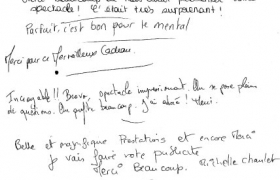 spectacle! C'était très surprenant!
Parfait, c'est bon pour le mental
Merci pour ce Merveilleux Cadeau.
Incroyable!! Bravo, spectacle impressionnant. On se pose plein
de questions. On gofte beaucoup. J'ai adoré! Merci.
Belle et magnifique Prestations et encore Merci
Je vais faire votre publicité
Merci Beaucoup.